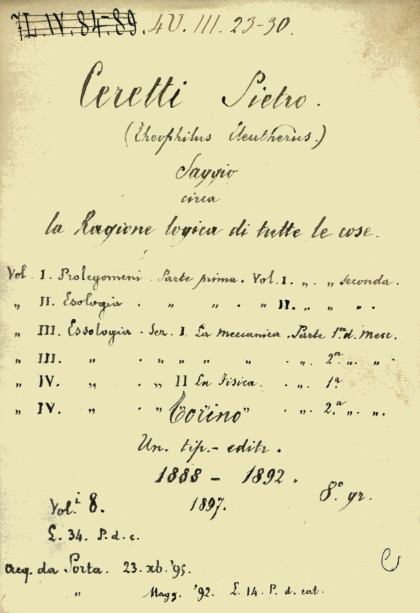 7L.IV.84-89. 4U.III.23-30.
Ceretti Pietro.
(Theophilus Eleutherus.)
Saggio
circa
la Ragione logica di tutte le cose.
Vol. I. Prolegomeni. Parte prima. Vol. I. „ . „ seconda.
„ II. Esologia . „ „ . „ II. „ . „ .
„ III. Essologia. Sez. I. La meccanica. Parte 1ª d. Mecc.
„ III. „ . „ „ „ „ . „ . 2.ª „ . „ .
„ IV. „ . „ II La Fisica. . „ . 1ª
„ IV. „ . „ „ „ . „ . 2.ª „ . „ .
Torino
Un. tip.- editr.
1888 - 1892.
1897.
8.° gr.
Vol.i 8.
£. 34. P. d. c.
Acq. da Porta. 23. xb. '95.
„ Magg. '92. £. 14. P. d. cat.